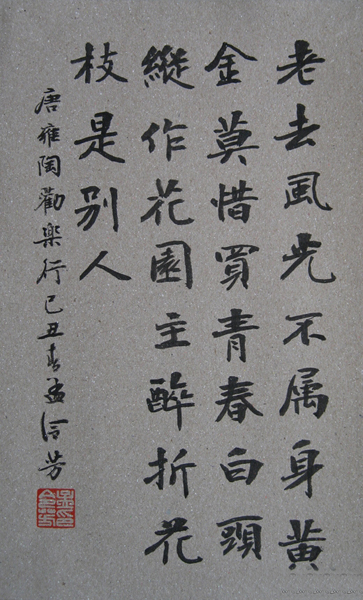 老去風光不属身黄
金莫惜買青春白頭
縱作花園主醉折花
枝是别人
唐雍陶勸樂行己丑春孟浛芳